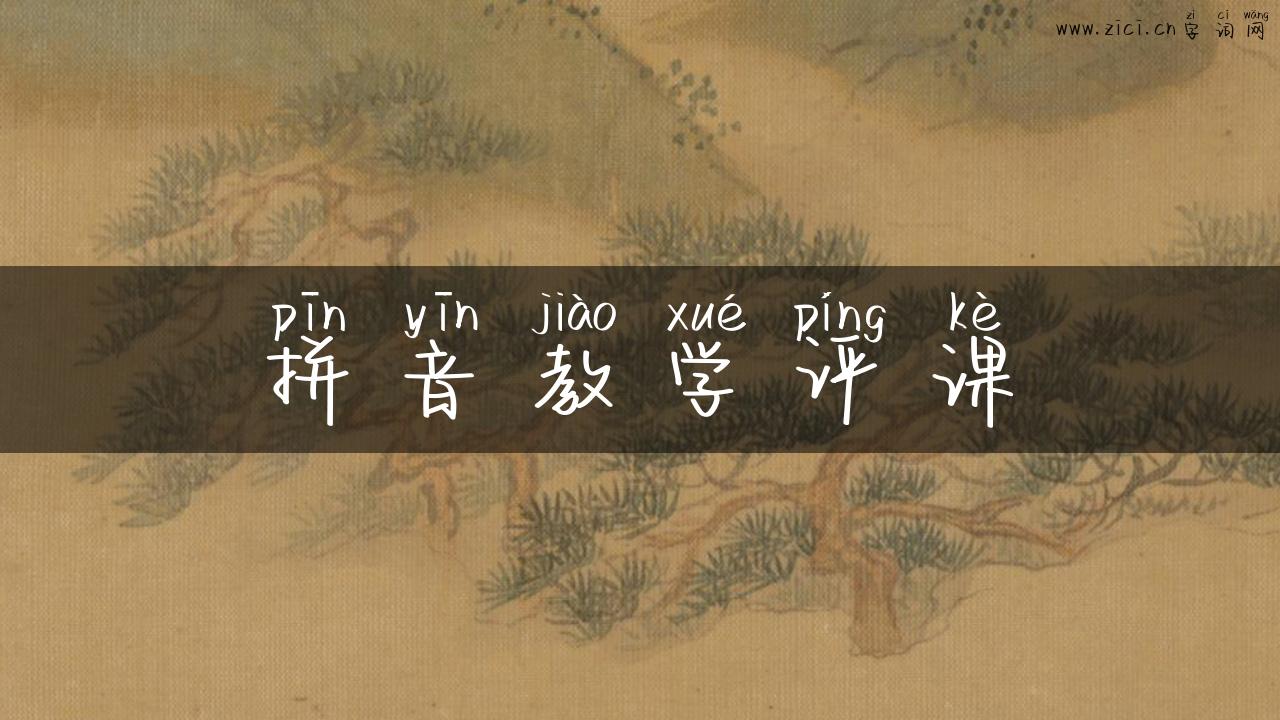 zì cí wǎng
www.zici.cn 字词网
pīn yīn jiào xué píng kè
拼音教学评课